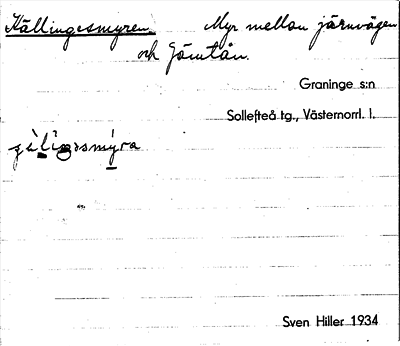 Källingesmyren. Myr mellan järnvägen
och Jämtån.
Graninge s:n
Sollefteå tg., Västernorrl. l.
Sven Hiller 1934